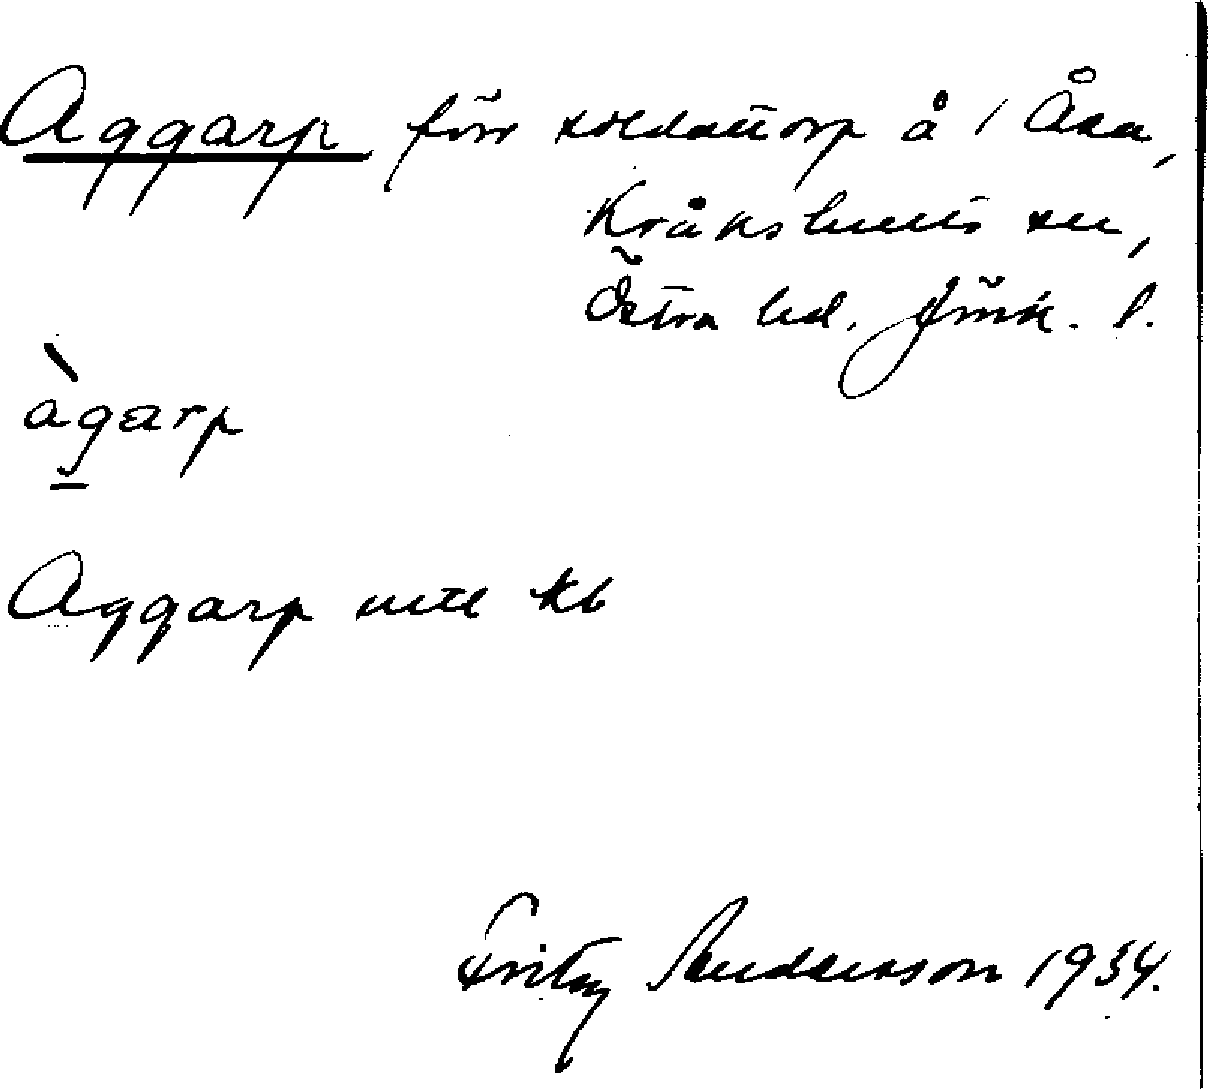 Aggarp förr soldattorp å 1 Åsa,
Kråkshults sn,
Östra hd. Jönk. l.
àgarp
Aggarp utt kb
Fritz Andersson 1934.